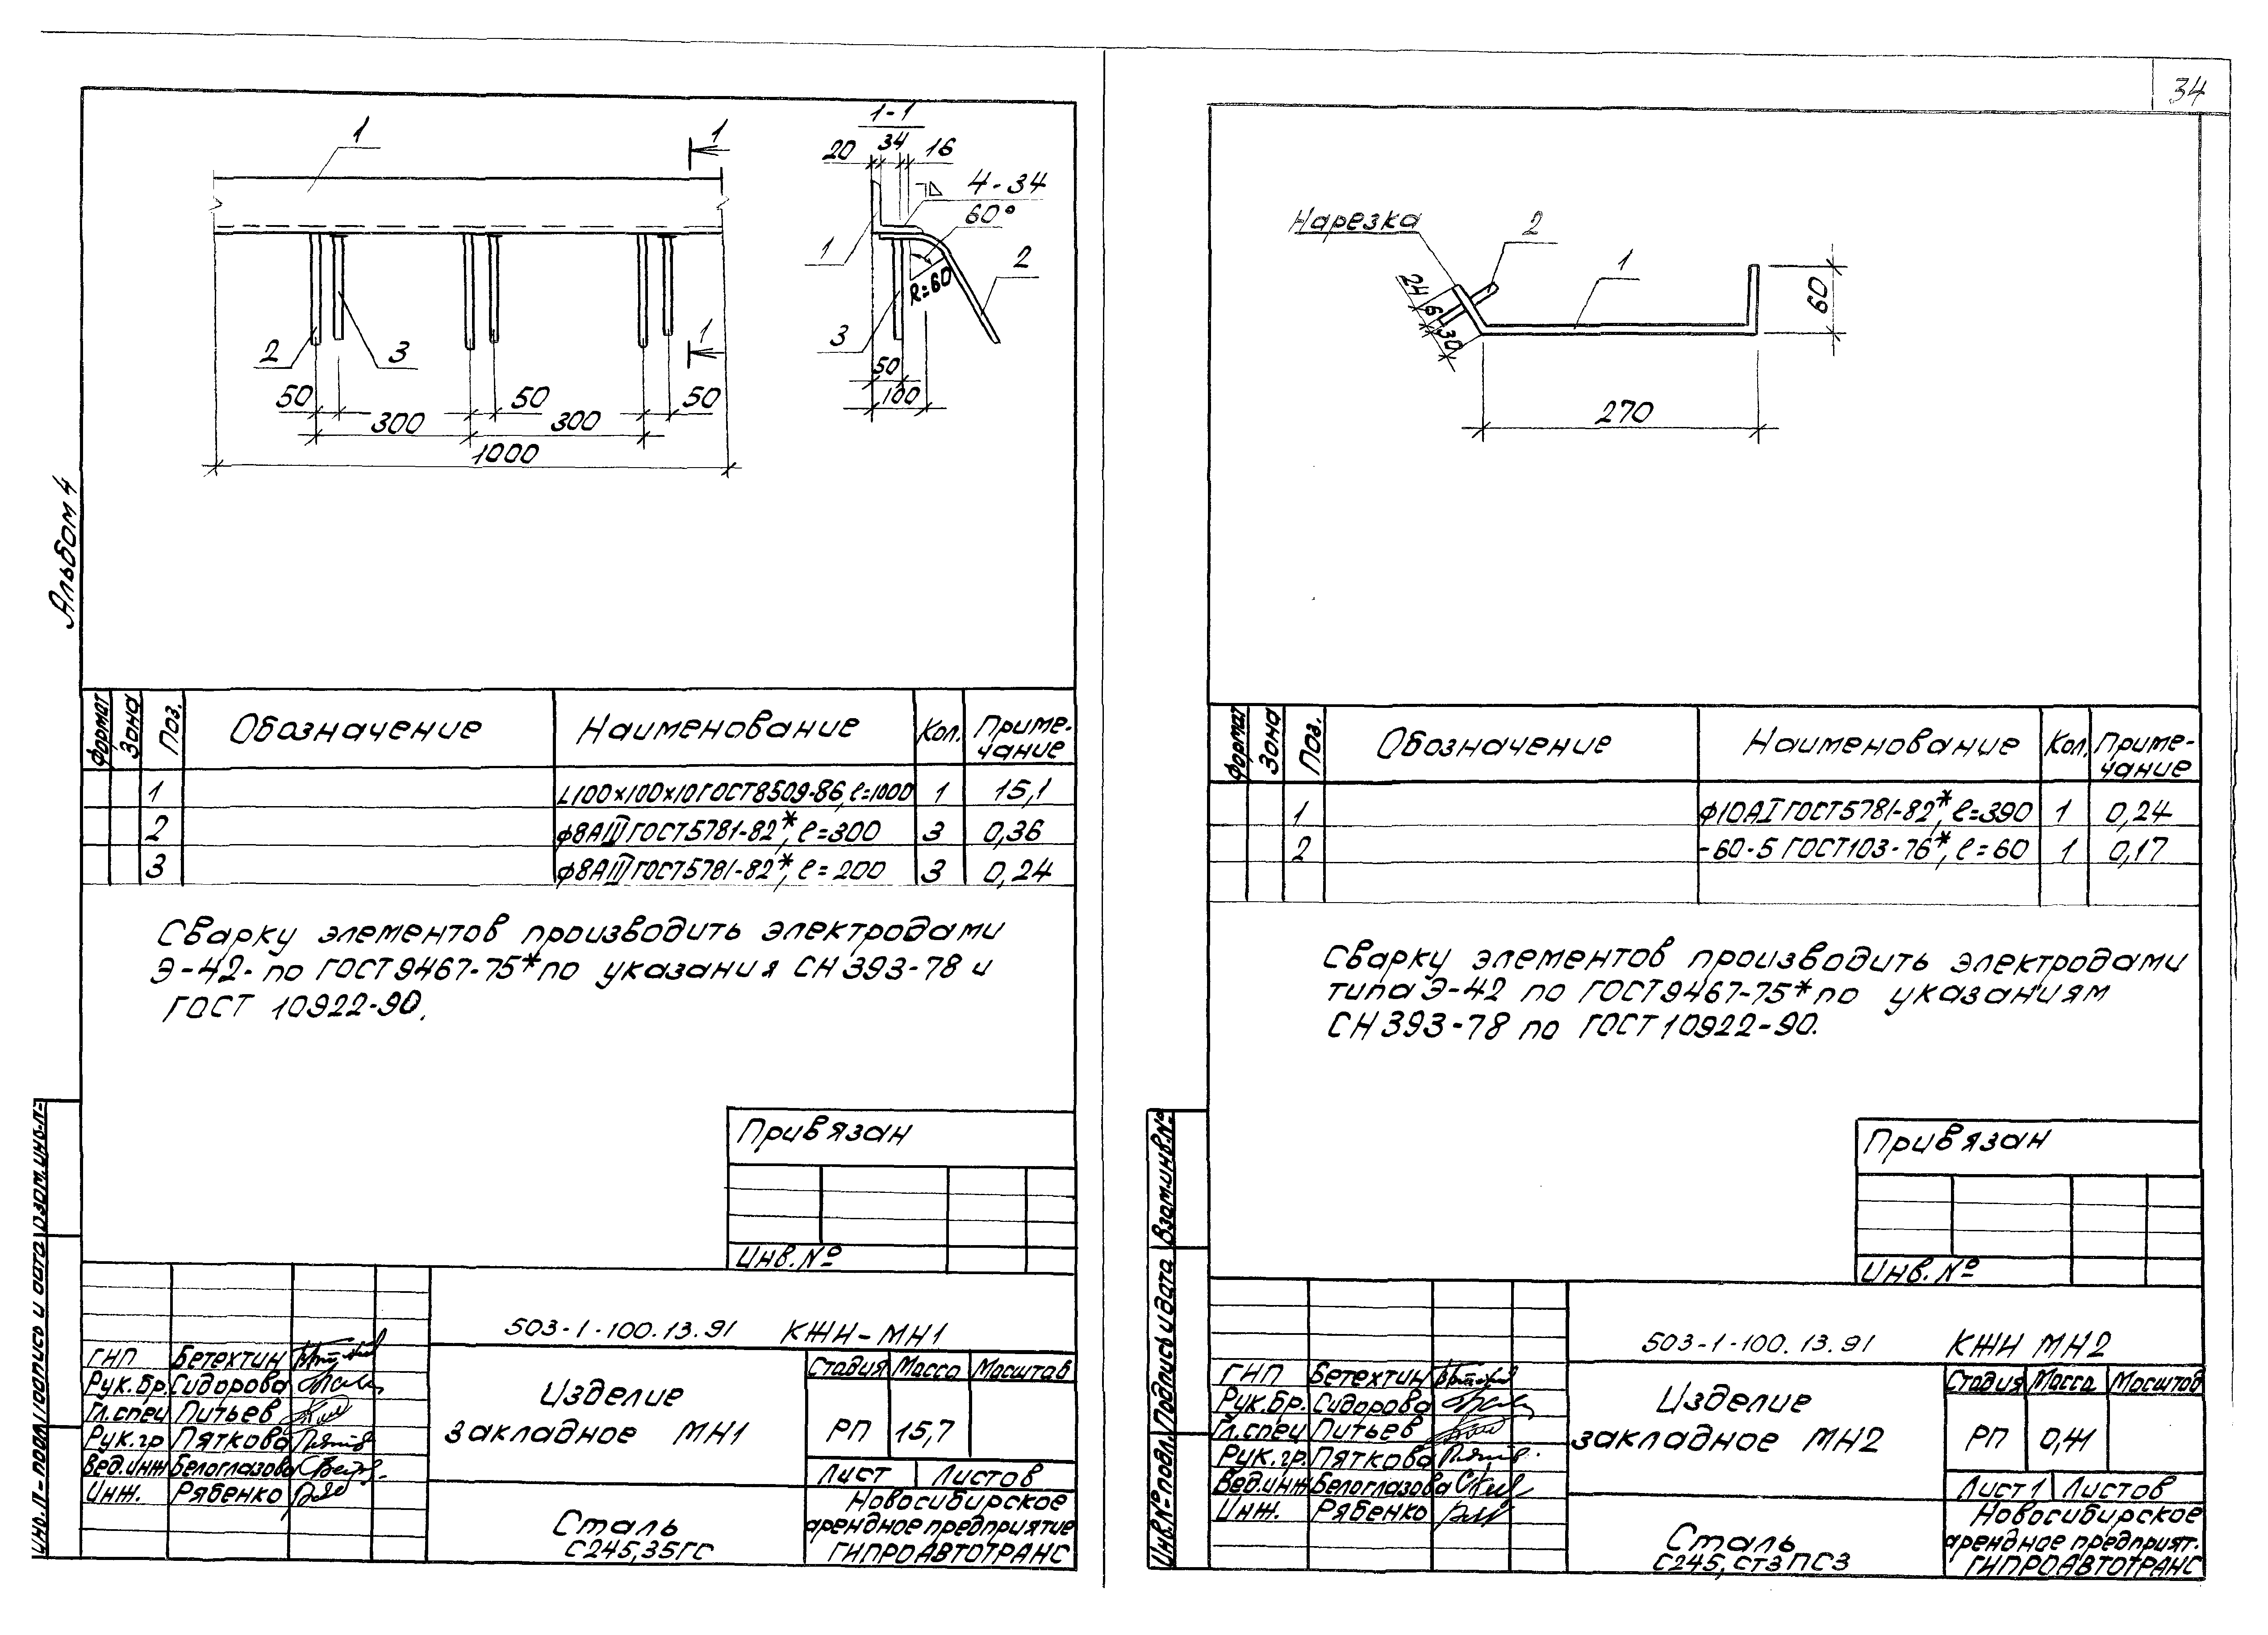 34
Альбом 4
1
1
2
3
50
300
50
300
50
1000
1
1-1
20
34
16
4-34
60°
1
2
R=60
3
50
100
Формат
Зона
Поз.
Обозначение
Наименование
Кол.
Приме-
чание
1 L100×100×10 ГОСТ 8509-86, ℓ=1000 1 15,1
2 ф8АIII ГОСТ 5781-82*, ℓ=300 3 0,36
3 ф8АIII ГОСТ 5781-82*, ℓ=200 3 0,24
Сварку элементов производить электродами
Э-42- по ГОСТ 9467-75* по указания СН 393-78 и
ГОСТ 10922-90.
Привязан
Инв. №
503-1-100.13.91 КЖИ-МН1
ГНП Бетехтин
Рук.бр. Сидорова
Гл.спец Питьев
Рук.гр Пяткова
Вед.инж Белоглазова
Инж. Рябенко
Изделие
закладное МН1
Стадия Масса Масштаб
РП 15,7
Лист Листов
Сталь
С245, 35ГС
Новосибирское
арендное предприятие
ГИПРОАВТОТРАНС
Нарезка
2
1
24
6
30
60
270
Формат
Зона
Поз.
Обозначение
Наименование
Кол.
Приме-
чание
1 ф10АI ГОСТ 5781-82*, ℓ=390 1 0,24
2 -60-5 ГОСТ 103-76*, ℓ=60 1 0,17
Сварку элементов производить электродами
типа Э-42 по ГОСТ 9467-75* по указаниям
СН 393-78 по ГОСТ 10922-90.
Привязан
Инв. №
Инв.№ подл. Подпись и дата Взам.инв.№
503-1-100.13.91 КЖИ МН2
ГНП Бетехтин
Рук.бр. Сидорова
Гл.спец Питьев
Рук.гр. Пяткова
Вед.инж Белоглазова
Инж. Рябенко
Изделие
закладное МН2
Стадия Масса Масштаб
РП 0,41
Лист 1 Листов
Сталь
С245, Ст3ПС3
Новосибирское
арендное предприят.
ГИПРОАВТОТРАНС